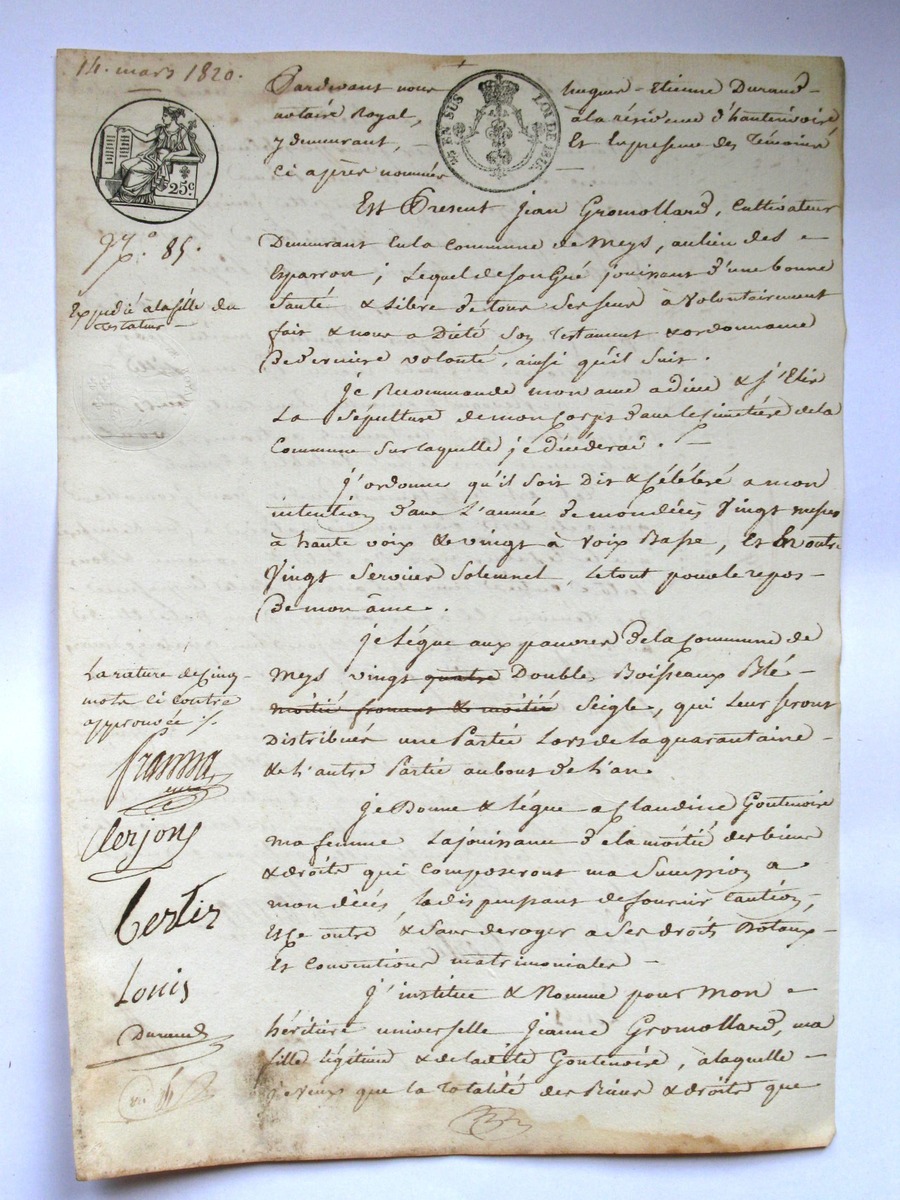 14. mars 1820.
25 EN SUS
LOI DE 1816
25c
85.
Expédié à la fille du
testateur —
Pardevant nous hugues-Etienne Durand
notaire Royal, à la résidence d'hauterivoire
y demeurant, — Et En presence des Témoins
ci après nommés —
Est Present Jean Gromollard, Cultivateur
Demeurant En la Commune de Meys, au lieu des
Esparron ; Lequel de son gré jouissant d'une bonne
Santé & Libre de tous Ses Sens à Volontairement
fait & nous a Dicté Son Testament & ordonnance
De derniere volonté, ainsi qu'il Suit.
Je Recommande mon ame a dieu & j'Elis
La Sépulture de mon Corps dans le Cimetière de la
Commune Sur laquelle je décéderai. —
J'ordonne qu'il Soit Dit & Célébré a mon
intention dans L'année de mon décès Vingt messes
à haute voix & vingt à Voix Basse, Et En outre
Vingt Services Solennel, Le tout pour le repos
De mon âme.
je Légue aux pauvres De la Commune de
Meys vingt quatre Double Boisseaux Blé
moitié froment & moitié Seigle, qui Leur Seront
Distribués une Partie Lors de la quarantaine
& L'autre Partie au bout de L'an.
Je Donne & Légue a Claudine Goutenoire
ma femme La jouissance de la moitié des biens
& droits qui composeront ma Succession a
mon décès, la dispensant de fournir Caution,
Et Ce outre & Sans deroger a Ses droits Dotaux
Et Conventions matrimoniales —
J'institue & Nomme pour Mon
héritière universelle Jeanne Gromollard, ma
fille Légitime & de ladite Goutenoire, à laquelle
je Veux que la Totalité des Biens & droits que
La rature de Cinq
mots Ci contre
approuvée
Clerjon
Bertin
Louis
Durand